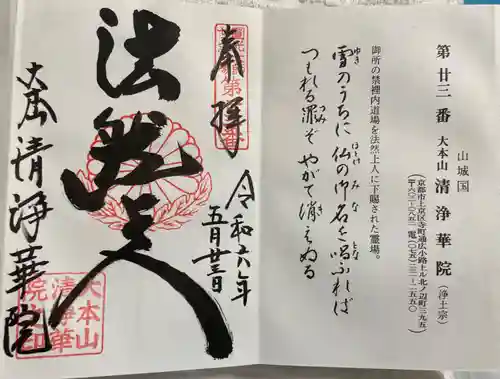 山城国
第廿三番 大本山 清浄華院 (浄土宗)
(京都市上京区寺町通広小路上ル北ノ辺町三九五
〒六〇二-〇八五二 電(〇七五)二三一-二五五〇)
御所の禁裡内道場を法然上人に下賜された霊場。
雪のうちに 仏の御名を唱ふれば
ゆき ほとけ みな とな
つもれる罪ぞ やがて消えぬる
つみ
奉拝
令和六年
五月廿三日
法然上人
大本山清浄華院
大本山
清浄華
院之印